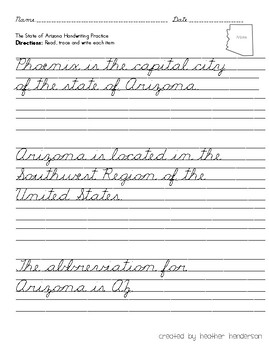 Name Date
The State of Arizona Handwriting Practice
Directions: Read, trace and write each item
Phoenix is the capital city
of the state of Arizona.
Arizona is located in the
Southwest Region of the
United States.
The abbreviation for
Arizona is AZ.
created by heather henderson